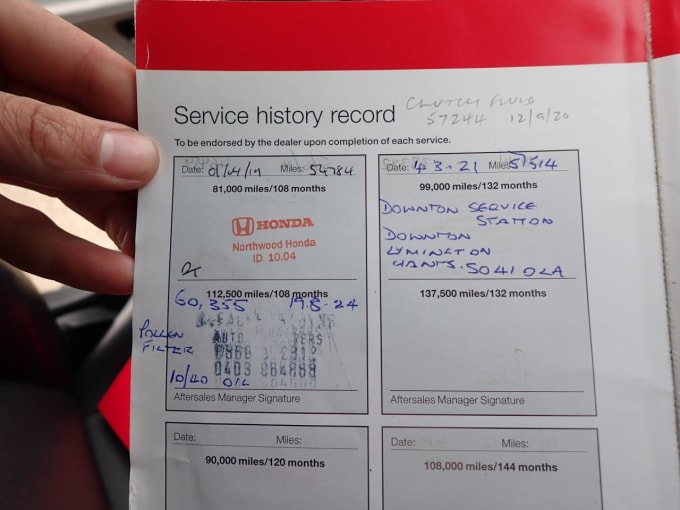 Service history record CLUTCH FLUID
57244 12/9/20
To be endorsed by the dealer upon completion of each service.
Date: 01/04/19 Miles: 54784
81,000 miles/108 months
HONDA
Northwood Honda
ID 10.04
112,500 miles/108 months
60,355 19.8.24
POLLEN
FILTER
AUTO
0403
10/40 OIL
Aftersales Manager Signature
Date: 4.3.21 Miles: 57514
99,000 miles/132 months
DOWNTON SERVICE
STATION
DOWNTON
LYMINGTON
HANTS. SO41 0LA
137,500 miles/132 months
Aftersales Manager Signature
Date: Miles:
90,000 miles/120 months
Date: Miles:
108,000 miles/144 months